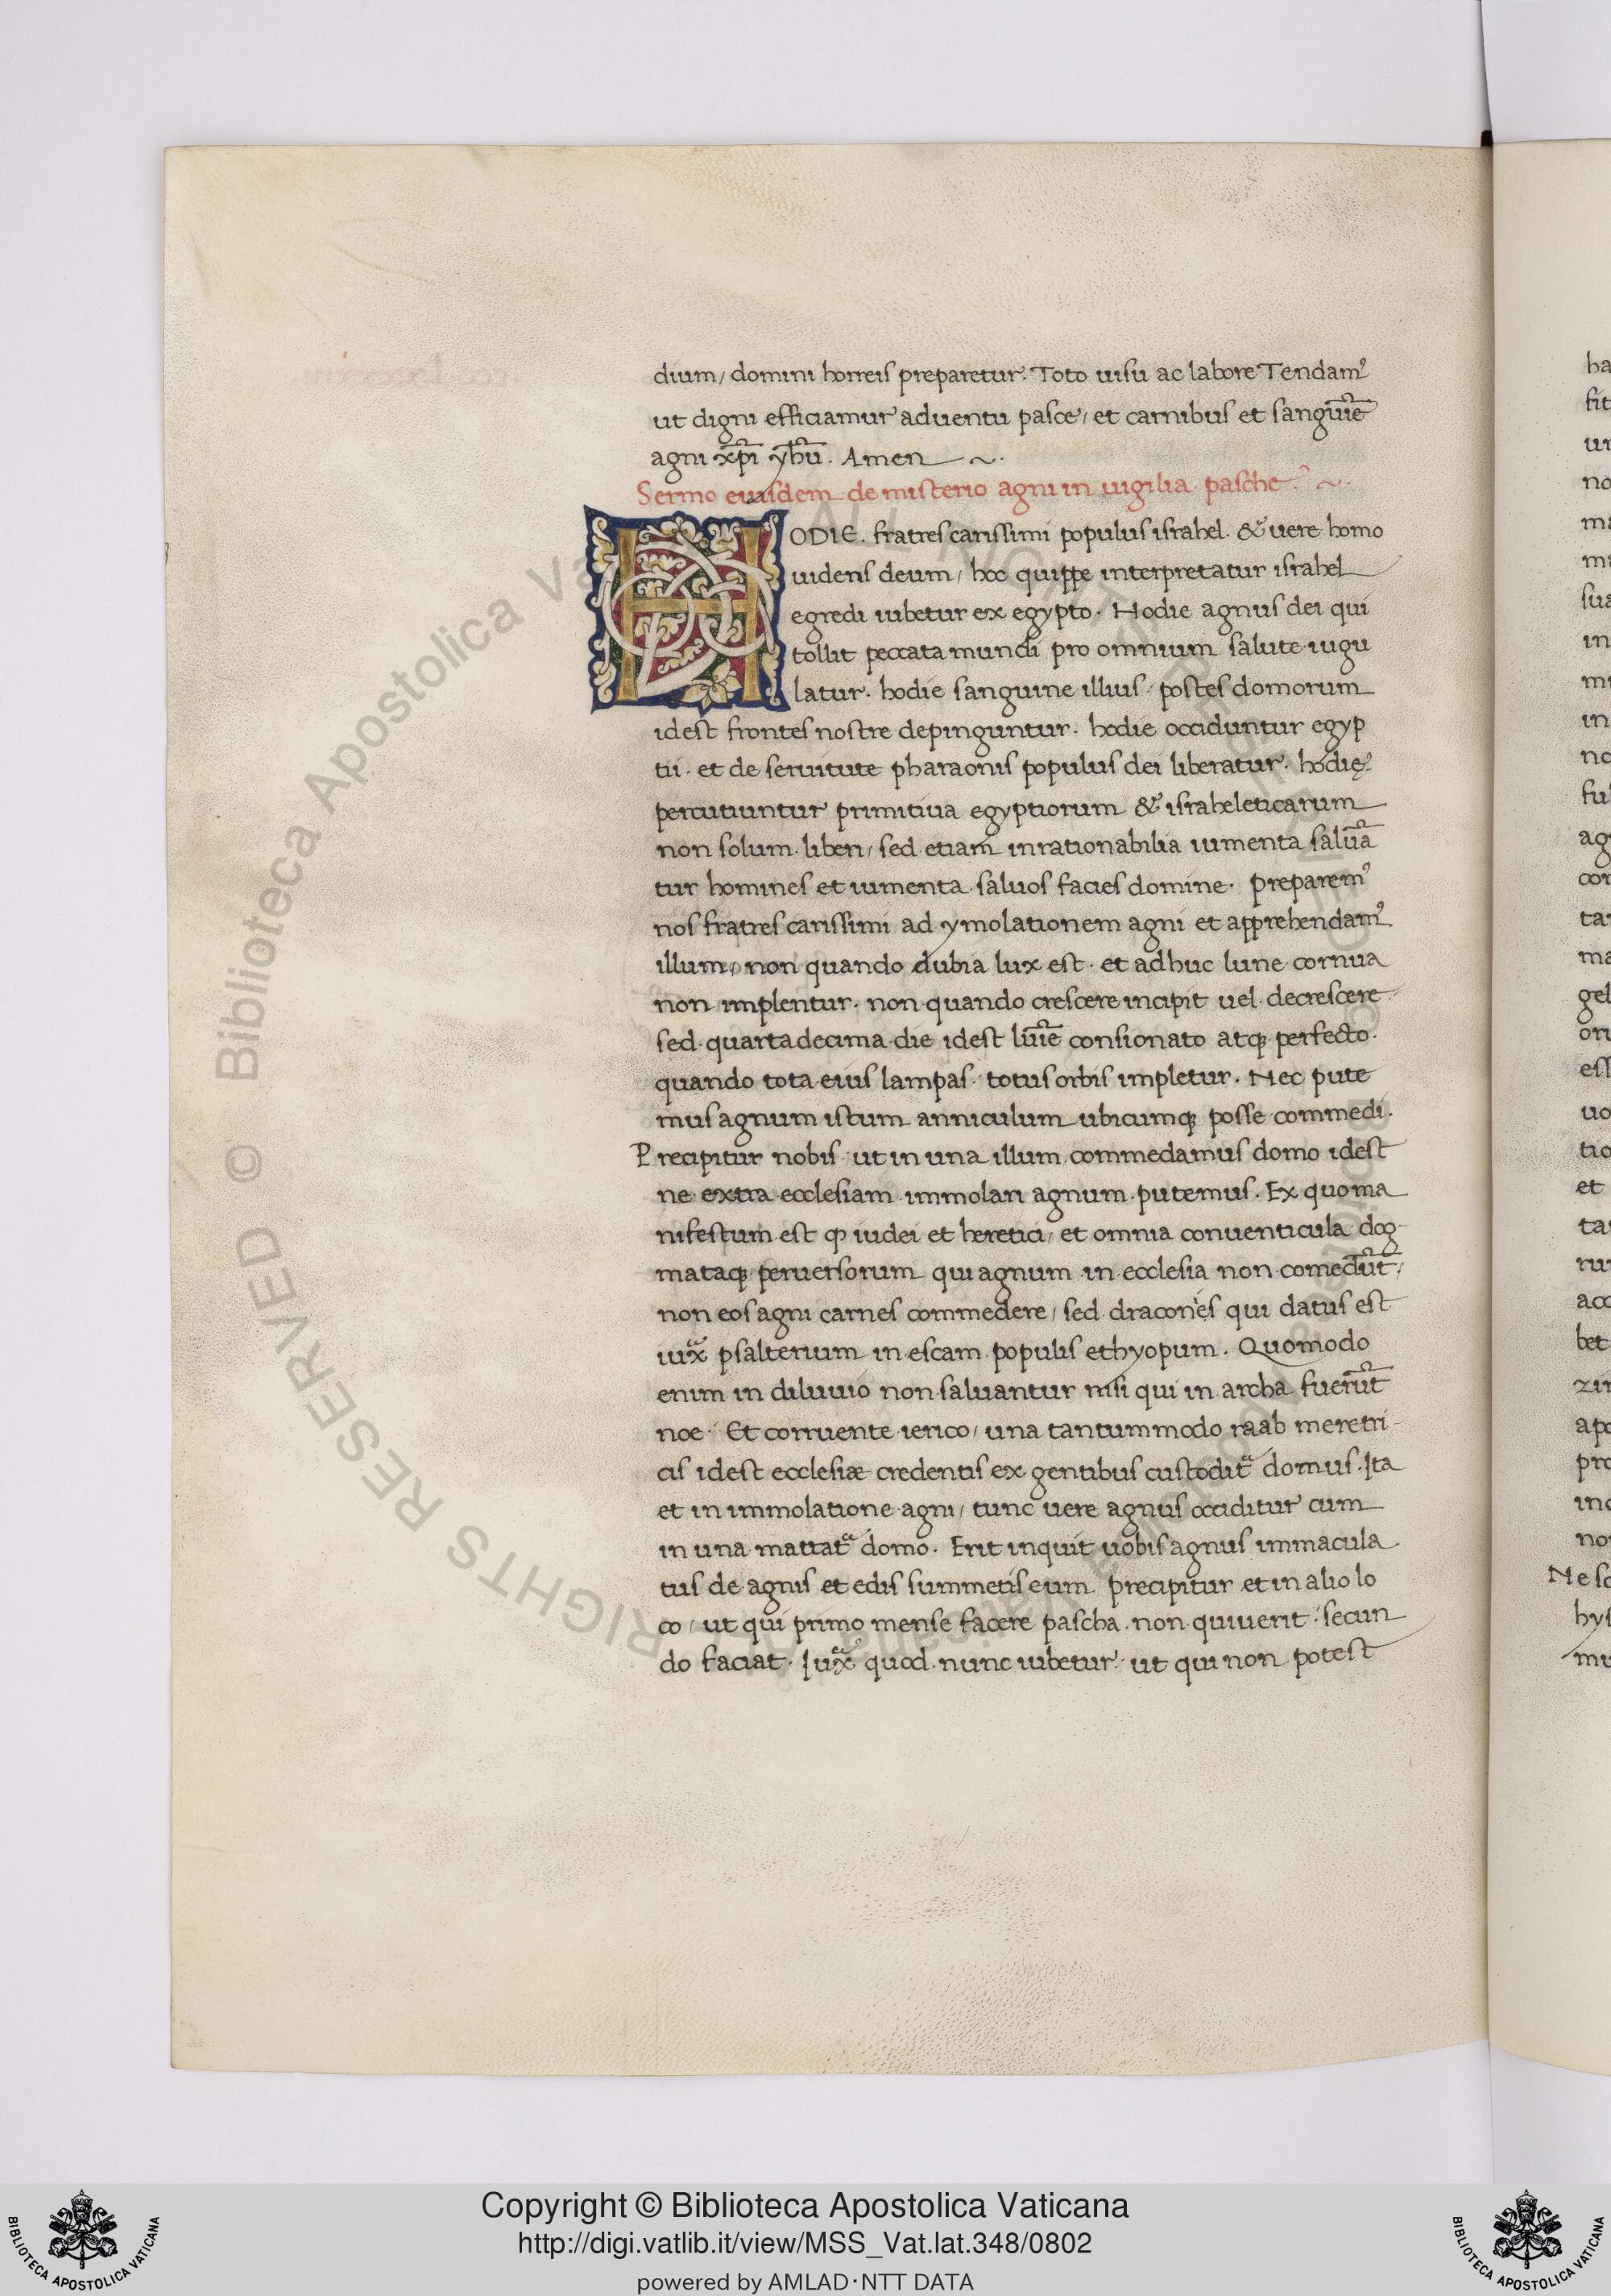 dium, domini horreis preparetur. Toto uisu ac labore Tendam᾿
ut digni efficiamur aduentu pasce, et carnibus et sanguīe
agni xp̄i yhū. Amen ~.
Sermo eiusdem de misterio agni in uigilia pasche ~
HODIE. fratres carissimi populus israhel. & uere homo
uidens deum, hoc quippe interpretatur israhel
egredi iubetur ex egypto. Hodie agnus dei qui
tollit peccata mundi pro omnium salute iugu
latur. hodie sanguine illius postes domorum
idest frontes nostre depinguntur. hodie occiduntur egyp
tii. et de seruitute pharaonis populus dei liberatur. hodię
percutiuntur primitiua egyptiorum & israheleticarum
non solum liberi, sed etiam inrationabilia iumenta saluā
tur homines et iumenta saluos facies domine. preparem᾿
nos fratres carissimi ad ymolationem agni et apprehendam᾿
illum, non quando dubia lux est. et adhuc lune cornua
non implentur. non quando crescere incipit uel decrescere
sed quartadecima die idest luīe consionato atq; perfecto.
quando tota eius lampas totus orbis impletur. Nec pute
mus agnum istum anniculum ubicumq; posse commedi.
Precipitur nobis ut in una illum commedamus domo idest
ne extra ecclesiam immolari agnum putemus. Ex quo ma
nifestum est ꝙ iudei et heretici, et omnia conuenticula dog-
mataq; peruersorum qui agnum in ecclesia non comedūt,
non eos agni carnes commedere, sed dracones qui datus est
iuxͣ psalterium in escam populis ethyopum. Quomodo
enim in diluuio non saluantur nisi qui in archa fuerūt
noe. Et corruente ierico, una tantummodo raab meretri-
cis idest ecclesiæ credentis ex gentibus custoditͣ domus. Ita
et in immolatione agni, tunc uere agnus occiditur cum
in una mattatͣ domo. Erit inquit uobis agnus immacula
tus de agnis et edis summetis eum. precipitur et in alio lo
co, ut qui primo mense facere pascha non quiuerit, secun
do faciat. Iuxͣ quod nunc iubetur. ut qui non potest
Biblioteca Apostolica Vaticana
ALL RIGHTS RESERVED ©
Copyright © Biblioteca Apostolica Vaticana
http://digi.vatlib.it/view/MSS_Vat.lat.348/0802
powered by AMLAD·NTT DATA
BIBLIOTECA APOSTOLICA VATICANA
BIBLIOTECA APOSTOLICA VATICANA